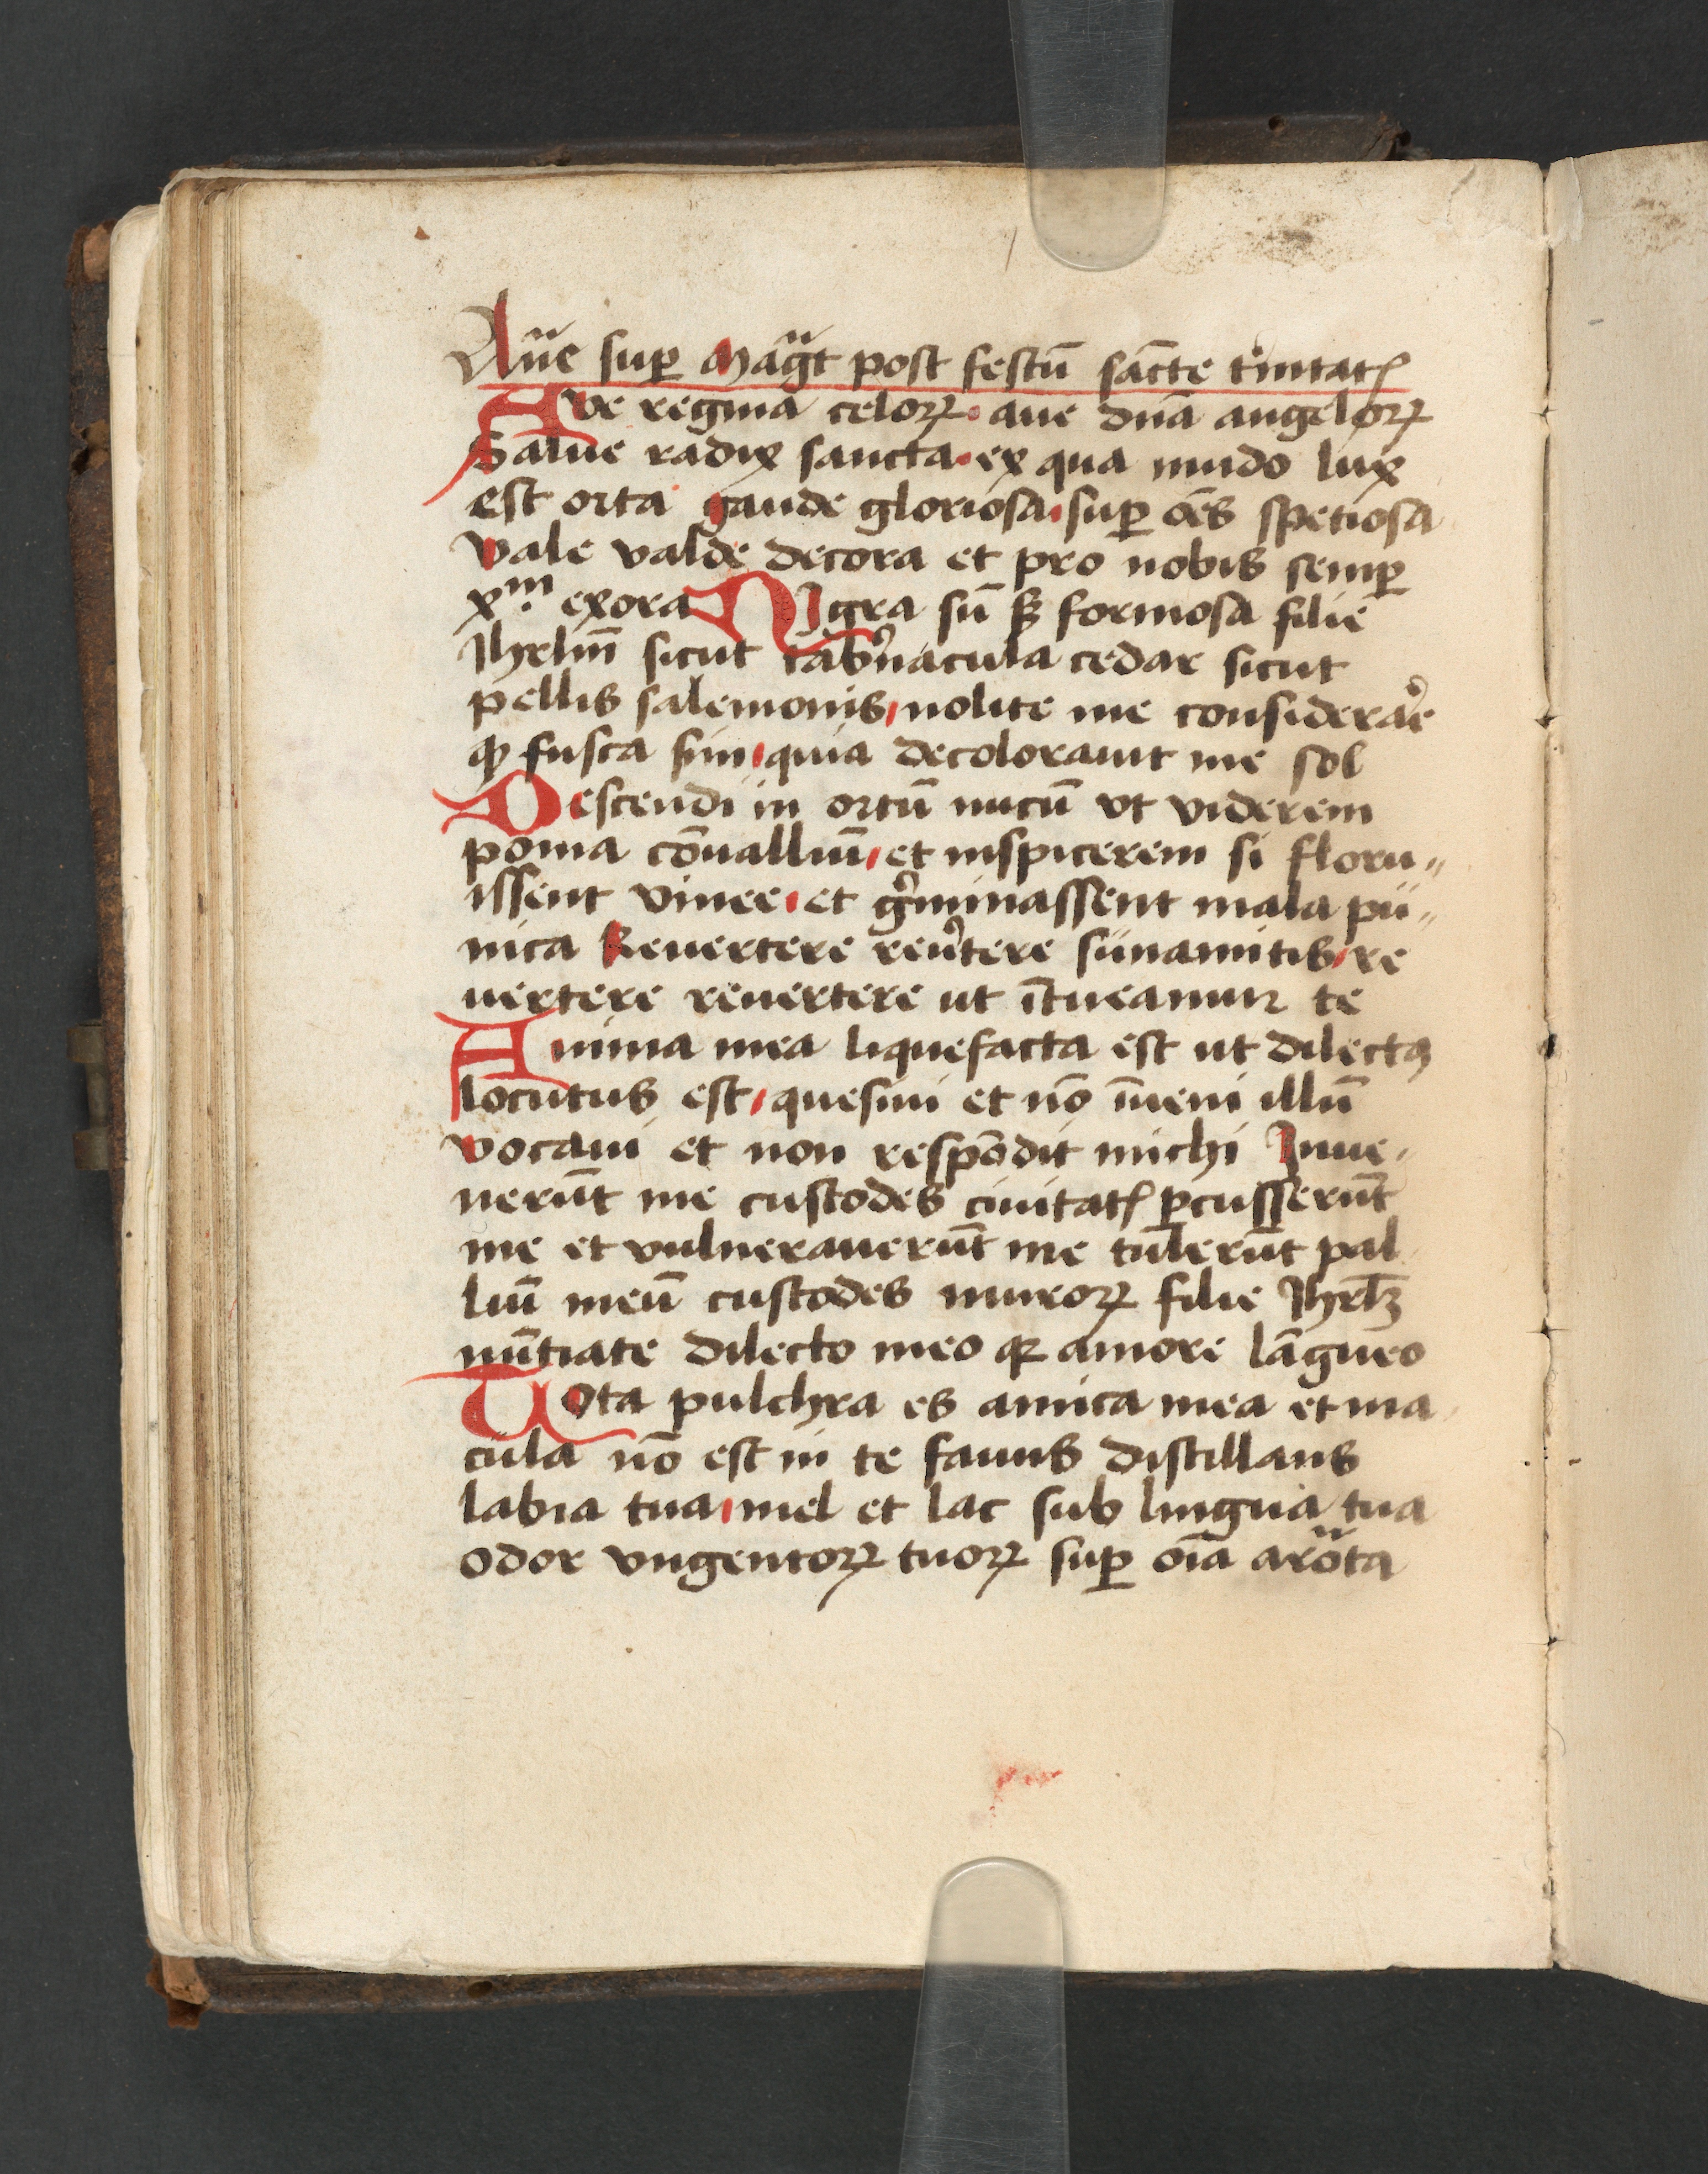 An̄e sup̲ Mag̃t post festū sāncte t'nitatꝭ
Ave regina celoꝝ aue dn̄a angeloꝝ
Salue radix sancta ex qua mūdo lux
est orta gaude gloriosa sup̲ oēs spetiosa
vale valde decora et pro nobis semp̲
xᵐ exora Nigra sū sꝫ formosa filie
Jhrlm̄ sicut tab'nacula cedar sicut
pellis salemonis nolite me considerar̾e
ꝙ fusca sim quia decolorauit me sol
Descendi in ortū nucū vt viderem
poma cōuallium̄ et inspicerem si floru„
issent vinee et g̾minassent mala pu„
nica Reuertere reu̾tere sunamitis re
uertere reuertere ut ītueamur te
Anima mea liquefacta est ut dilectꝰ
locutus est quesiui et nō īueni illū
vocaui et non respōdit michi Inue„
nerūt me custodes ciuitatꝭ ꝑcusserūt
me et vulnerauerūt me tulerūt pal
liū meū custodes muroꝝ filie Jhrlꝫ
nūtiate dilecto meo qꝛ amore lāngueo
Tota pulchra es amica mea et ma
cula nō est in te fauus distillans
labia tua mel et lac sub lingua tua
odor vngentoꝝ tuoꝝ sup̲ oīa aroᷓta